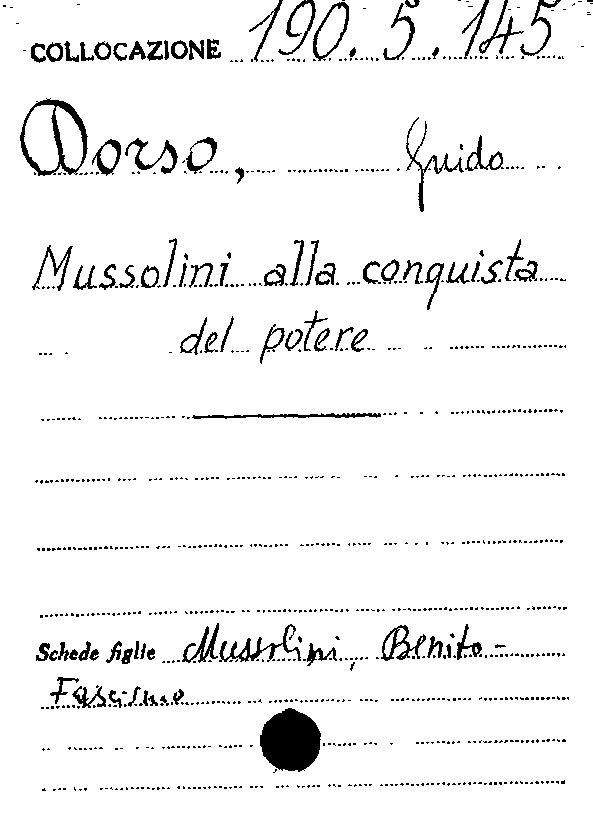 COLLOCAZIONE 190. 5. 145
Dorso, Guido
Mussolini alla conquista
del potere
Schede figlie Mussolini, Benito -
Fascismo